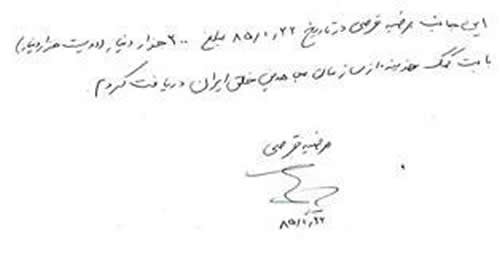 این جانب مرضیه قرصی در تاریخ ۸۵/۱/۲۲ مبلغ ۲۰۰ هزار دینار (دویست هزار دینار)
بابت کمک هزینه از سازمان مجاهدین خلق ایران دریافت کردم.
مرضیه قرصی
۸۵/۱/۲۲